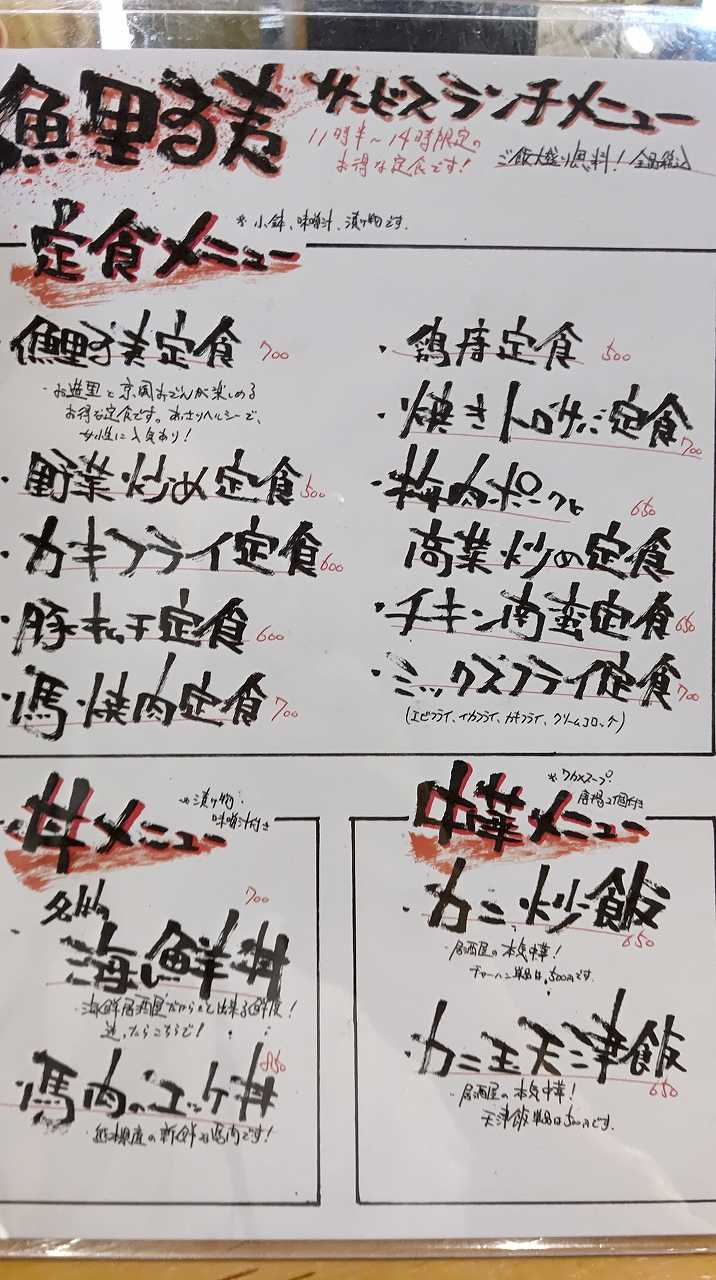 サービスランチメニュー
11時半~14時限定の
お得な定食です!
ご飯大盛り無料! 全品税込
定食メニュー
※小鉢、味噌汁、漬け物です.
定食 700
お得な定食です。あっさりヘルシーで、
女性に人気あり!
・野菜炒め定食 500
・カキフライ定食 600
・豚キムチ定食 600
・馬焼肉定食 700
・鶏唐定食 500
・焼きトロサバ定食 700
・梅肉ポークと 650
野菜炒め定食
・チキン南蛮定食 650
・ミックスフライ定食 700
(エビフライ、イカフライ、カキフライ、クリームコロッケ)
丼メニュー
※漬け物・
味噌汁付き
・名物 700
海鮮丼
・海鮮居酒屋だからこそ出来る鮮度!
迷ったらこちらで!
・馬肉のユッケ丼 850
・熊本産の新鮮な馬肉です!
中華メニュー
※ワカメスープ.
唐揚2個付き
・カニ炒飯 650
・居酒屋の本気中華!
チャーハン単品は、500円です.
・カニ玉天津飯 650
・居酒屋の本気中華!
天津飯単品は500円です.